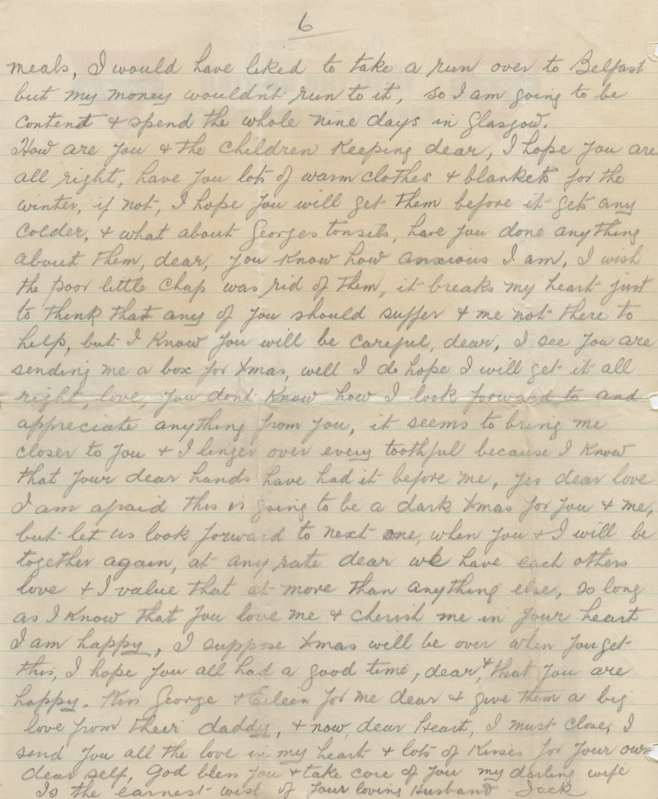 6
meals, I would have liked to take a run over to Belfast
but my money wouldn't run to it, so I am going to be
content & spend the whole nine days in Glasgow.
How are you & the children keeping dear, I hope you are
all right, have you lots of warm clothes & blankets for the
winter, if not, I hope you will get them before it gets any
colder, & what about Georges tonsils, have you done anything
about them, dear, you know how anxious I am, I wish
the poor little chap was rid of them, it breaks my heart just
to think that any of you should suffer & me not there to
help, but I know you will be careful, dear, I see you are
sending me a box for Xmas, well I do hope I will get it all
right, love, you dont know how I look forward to and
appreciate anything from you, it seems to bring me
closer to you & I linger over every toothful because I know
that your dear hands have had it before me, yes dear love
I am afraid this is going to be a dark Xmas for you & me,
but let us look forward to next one, when you & I will be
together again, at any rate dear we have each others
love & I value that at more than anything else, so long
as I know that you love me & cherish me in your heart
I am happy, I suppose Xmas will be over when you get
this, I hope you all had a good time, dear, & that you are
happy. Kiss George & Eileen for me dear & give them a big
love from their daddy, & now, dear heart, I must close, I
send you all the love in my heart & lots of kisses for your own
dear self, God bless you & take care of you my darling wife
Is the earnest wish of your loving Husband Jack